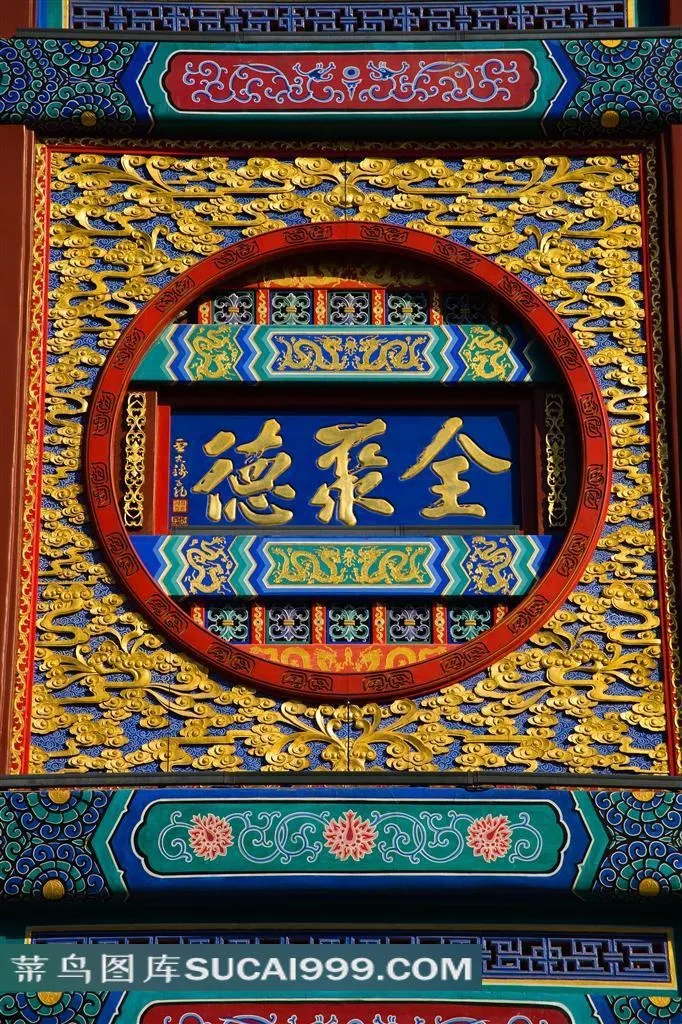 全聚德
菜鸟图库SUCAI999.COM